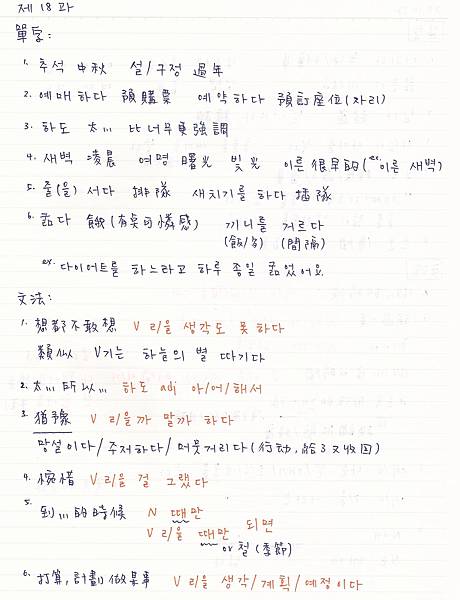 제 18 과
單字:
1. 추석 中秋 설/구정 過年
2. 예매하다 預購票 예약하다 預訂座位(자리)
3. 하도 太... 比너무更強調
4. 새벽 凌晨 여명 曙光 빛 光 이른 很早的(ex. 이른 새벽)
5. 줄(을) 서다 排隊 새치기를 하다 插隊
6. 굶다 餓(有點可憐感) 끼니를 거르다
(飯/餐) (間隔)
ex. 다이어트를 하느라고 하루 종일 굶었어요
文法:
1. 想都不敢想 V 리/을 생각도 못 하다
類似 V기는 하늘의 별 따기다
2. 太... 所以... 하도 adj 아/어/해서
3. 猶豫 V 리/을까 말까 하다
망설이다/주저하다/머뭇거리다(行動,給了又收回)
4. 惋惜 V 리/을 걸 그랬다
5. 到...的時候 N 때만
V 리/을 때만 되면
or 철(季節)
6. 打算,計劃做某事 V 리/을 생각/계획/예정이다